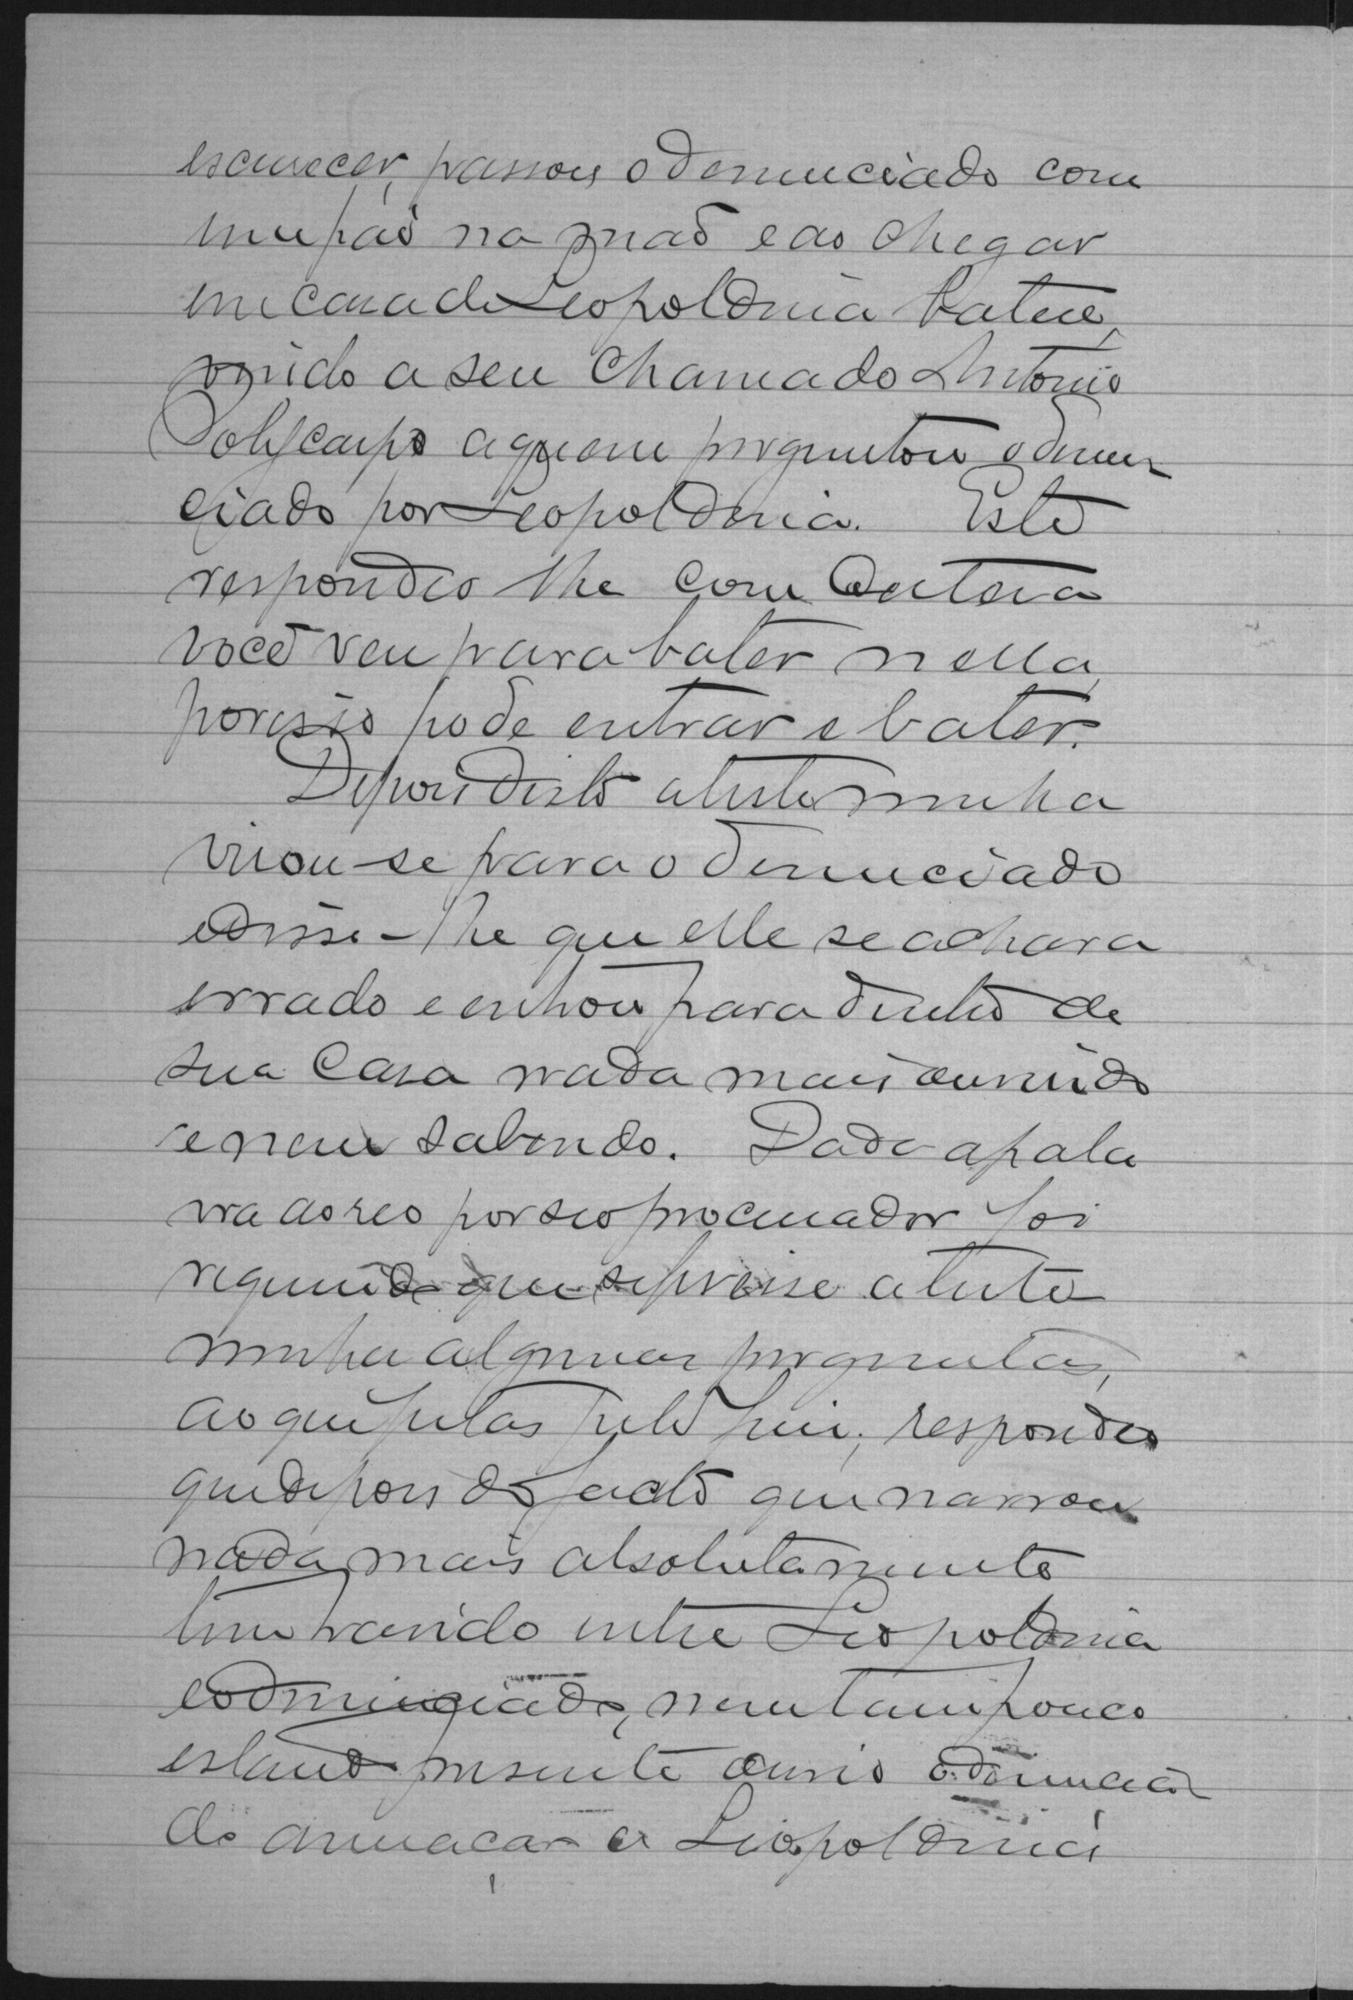 escurecer, passou o denunciado com
um páo na mão e ao chegar
em casa de Leopoldina bateu,
vindo a seu chamado Antonio
Polycarpo a quem preguntou o denun
ciado por Leopoldina. Este
respondeo lhe com
você vem para bater nella,
por isso pode entrar e bater.
Depois disto a testemunha
virou-se para o denunciado
e disse-lhe que elle se achava
errado e entrou para dentro de
sua casa nada mais ouvindo
e nem sabendo. Dada a pala
vra ao reo por seo procurador foi
requerido que se fizesse a teste
munha algumas preguntas,
ao que feitas pelo juiz, respondeo
que depois do facto que narrou
nada mais absolutamente
tem havido entre Leopoldina
e o denunciado, nem tam pouco
estando presente ouvio o denuncia
do ameaçar a Leopoldina